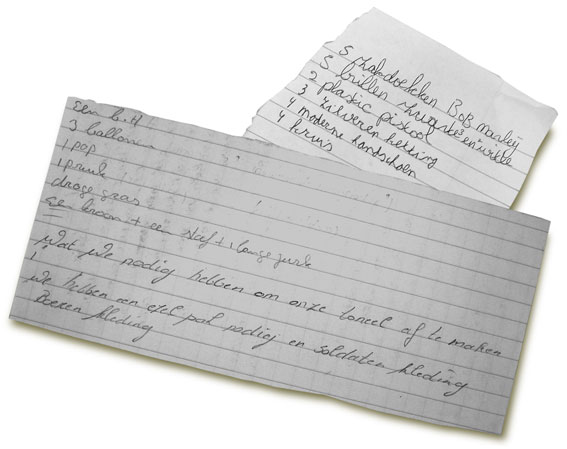 5 zakdoekken Bob Marley
5 brillen zwarte en witte
2 plastic pistool
3 zilveren ketting
4 moderne handschoen
4 kruis
Een b.H
3 ballonnen
1 pop
1 pruik
droge gras
Een kroon + een staf + 1 lange jurk
Wat we nodig hebben om onze toneel af te maken
We hebben een ezel pak nodig en soldaten kleding
Boeren kleding